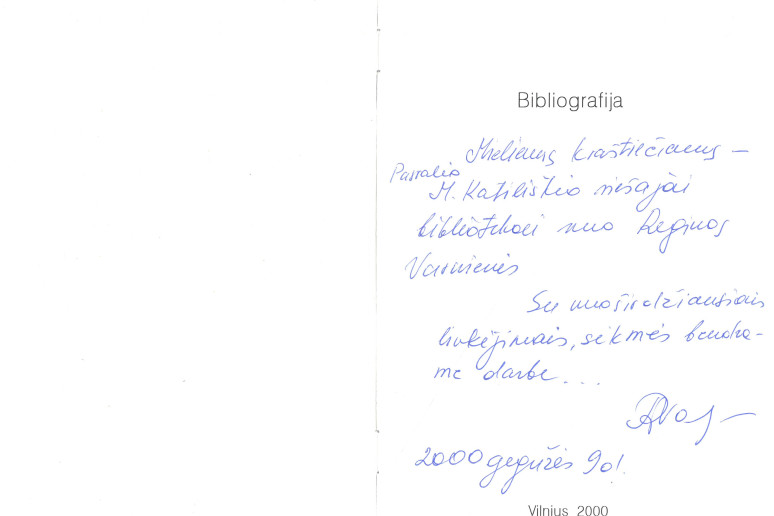 Bibliografija
Mieliems kraštiečiams –
Pasvalio
M. Katiliškio viešajai
bibliotekai nuo Reginos
Varnienės
Su nuoširdžiausiais
linkėjimais, sėkmės bendra-
me darbe...
2000 gegužės 9 d.
Vilnius 2000